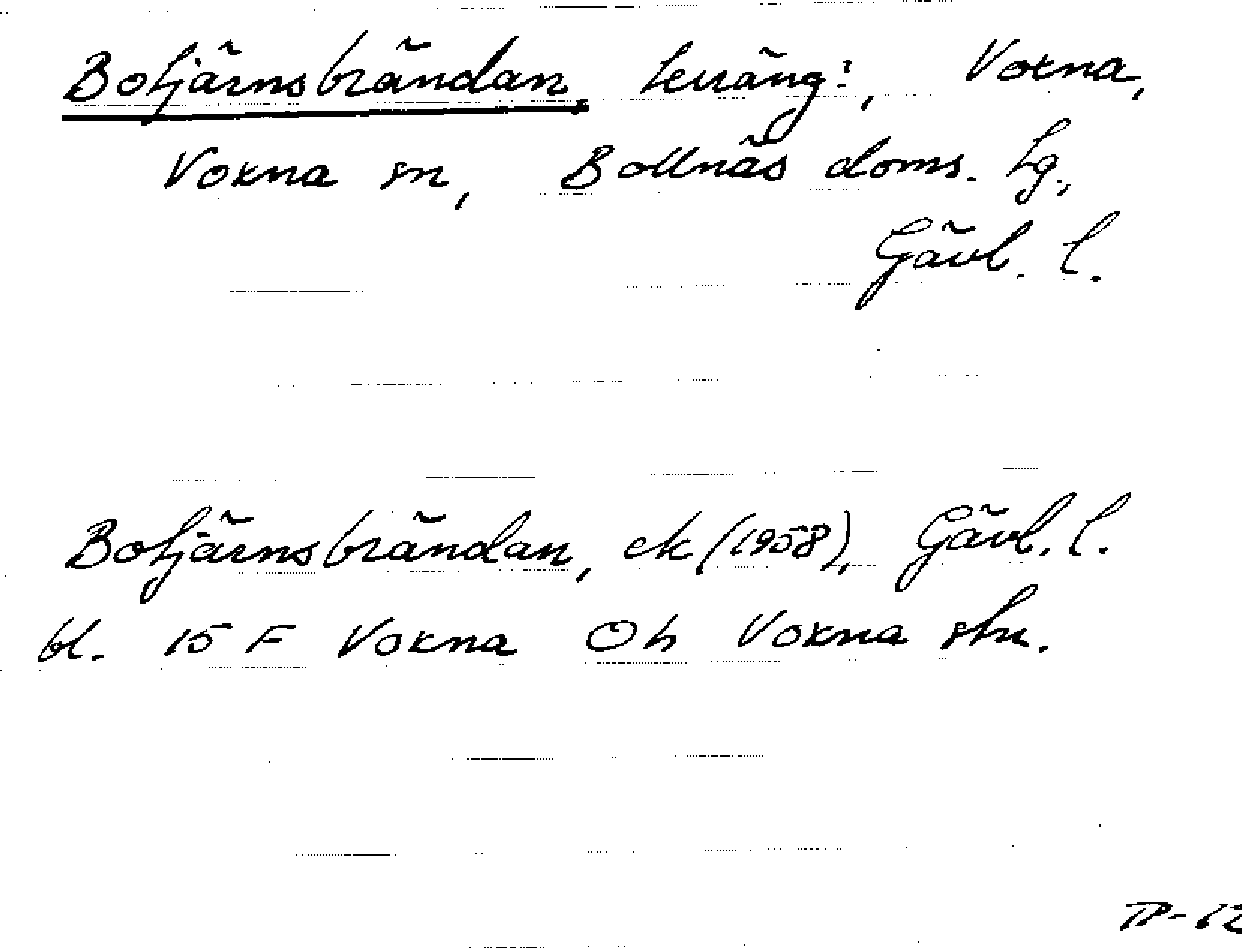 Botjärnsbrändan, terräng:, Voxna,
Voxna sn, Bollnäs doms. tg.,
Gävl. l.
Botjärnsbrändan, ek (1958), Gävl. l.
bl. 15 F Voxna Oh Voxna skn.
TP-62